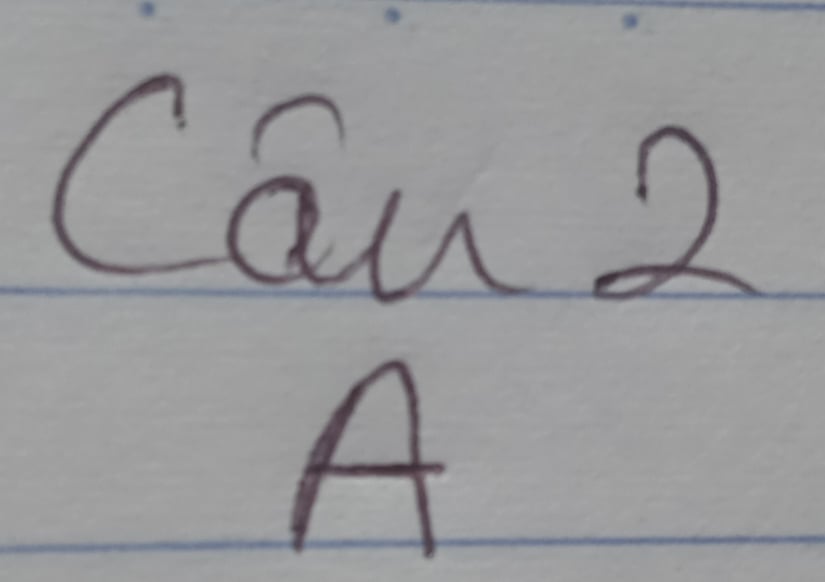 Câu 2
A